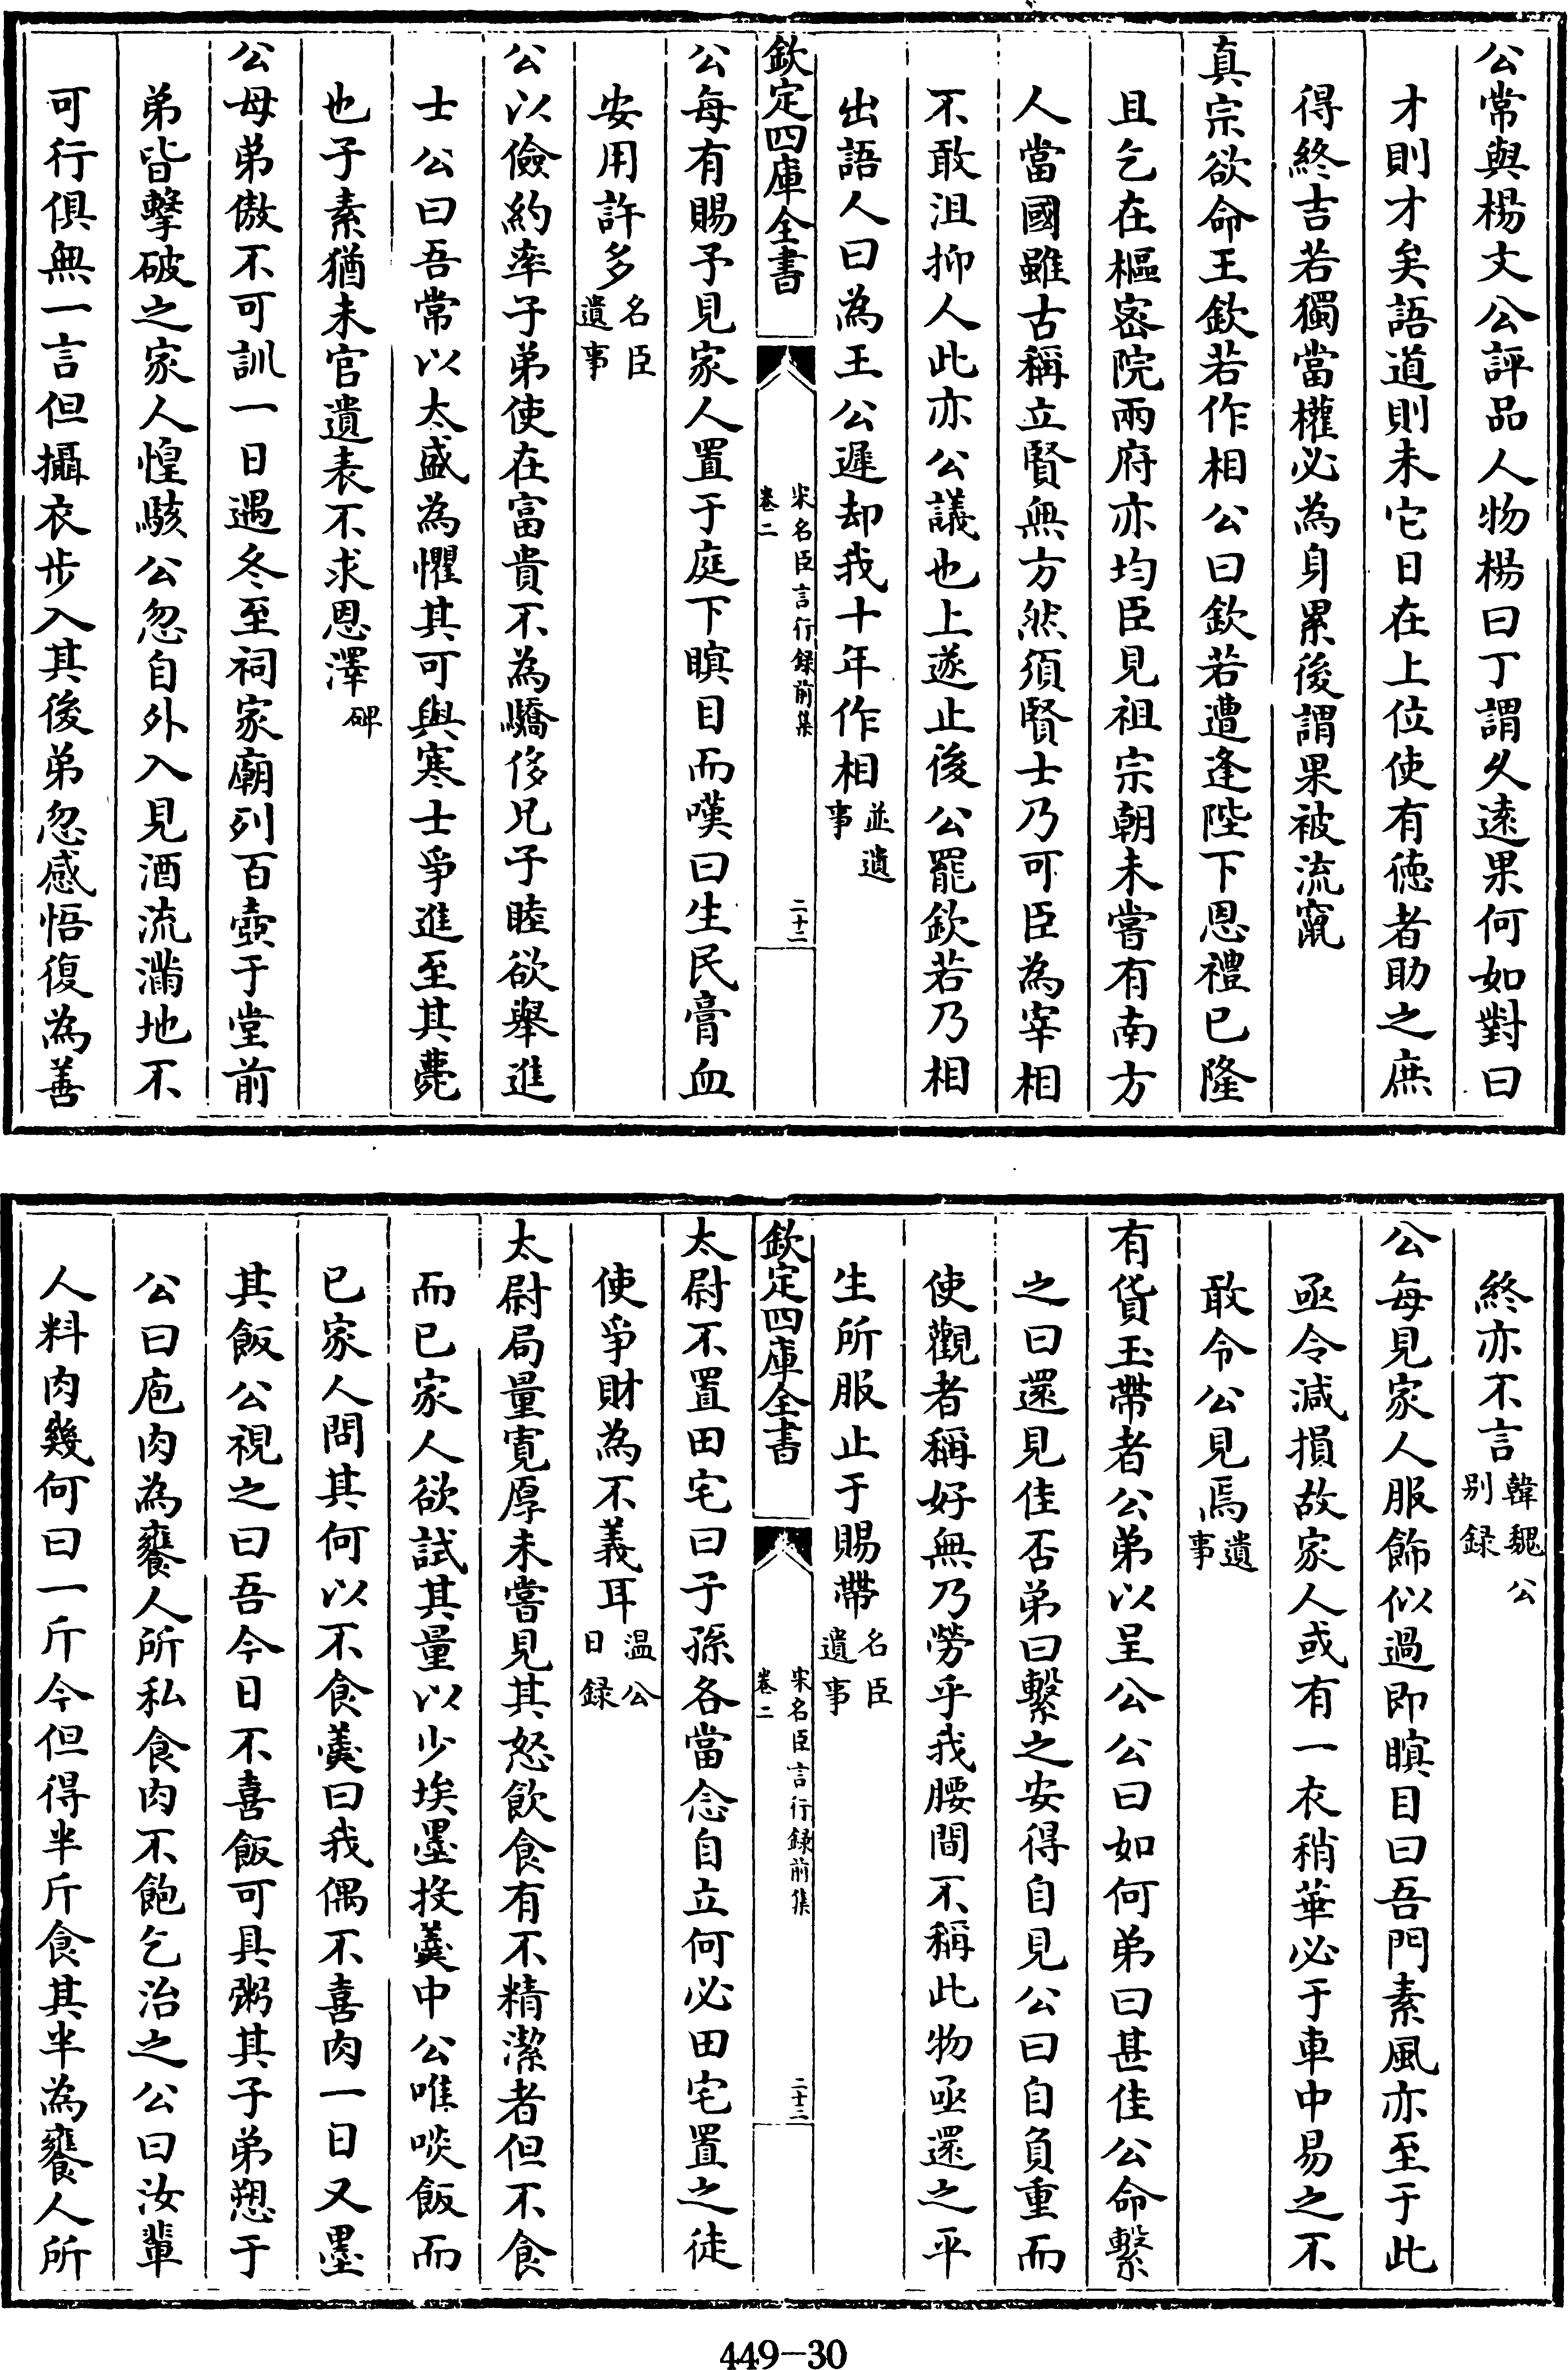 公常與楊文公評品人物楊曰丁謂久遠果何如對曰
才則才矣語道則未它日在上位使有徳者助之庶
得終吉若獨當權必為身累後謂果被流竄
真宗欲命王欽若作相公曰欽若遭逢陛下恩禮已隆
且乞在樞宻院兩府亦均臣見祖宗朝未嘗有南方
人當國雖古稱立賢無方然須賢士乃可臣為宰相
不敢沮抑人此亦公議也上遂止後公罷欽若乃相
出語人曰為王公遲却我十年作相並遺
事
欽定四庫全書
宋名臣言行録前集
卷二
二十二
公每有賜予見家人置于庭下瞑目而嘆曰生民膏血
安用許多名臣
遺事
公以儉約率子弟使在富貴不為驕侈兄子睦欲舉進
士公曰吾常以太盛為懼其可與寒士爭進至其薨
也子素猶未官遺表不求恩澤碑
公母弟傲不可訓一日遇冬至祠家廟列百壺于堂前
弟皆擊破之家人惶駭公忽自外入見酒流滿地不
可行俱無一言但攝衣步入其後弟忽感悟復為善
終亦不言韓魏公
别録
公每見家人服飾似過即瞑目曰吾門素風亦至于此
亟令減損故家人或有一衣稍華必于車中易之不
敢令公見焉遺
事
有貨玉帶者公弟以呈公公曰如何弟曰甚佳公命繫
之曰還見佳否弟曰繫之安得自見公曰自負重而
使觀者稱好無乃勞乎我腰間不稱此物亟還之平
生所服止于賜帶名臣
遺事
欽定四庫全書
宋名臣言行録前集
卷二
二十三
太尉不置田宅曰子孫各當念自立何必田宅置之徒
使爭財為不義耳温公
日録
太尉局量寛厚未嘗見其怒飲食有不精潔者但不食
而已家人欲試其量以少埃墨投羹中公唯啖飯而
已家人問其何以不食羹曰我偶不喜肉一日又墨
其飯公視之曰吾今日不喜飯可具粥其子弟愬于
公曰庖肉為饔人所私食肉不飽乞治之公曰汝輩
人料肉幾何曰一斤今但得半斤食其半為饔人所
449-30